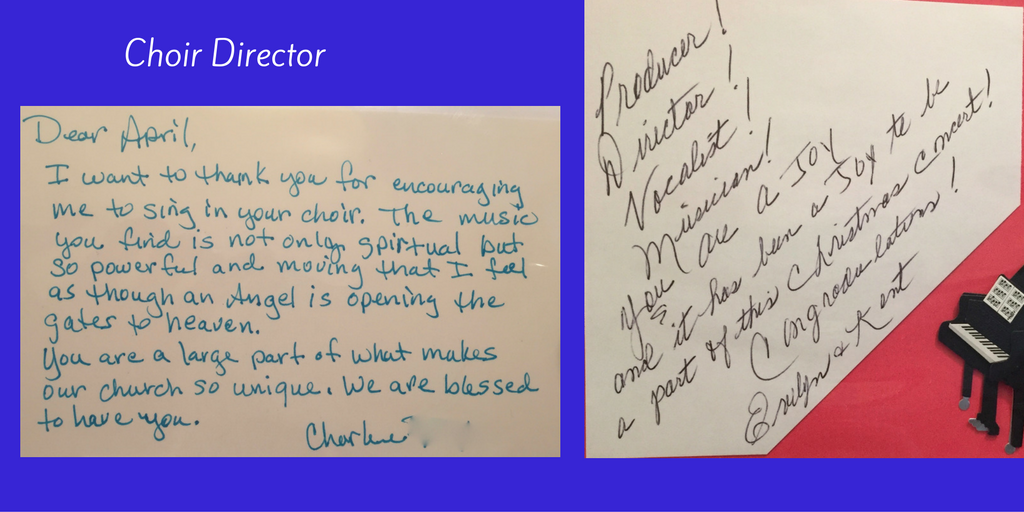 Choir Director
Dear April,
I want to thank you for encouraging
me to sing in your choir. The music
you find is not only spirtual but
so powerful and moving that I feel
as though an Angel is opening the
gates to heaven.
You are a large part of what makes
our church so unique. We are blessed
to have you.
Charlene
Producer!
Director!
Vocalist!
Musician!
You are a Joy
and it has been a Joy to be
a part of this Christmas Concert!
Congradulations!
Evelyn & Kent